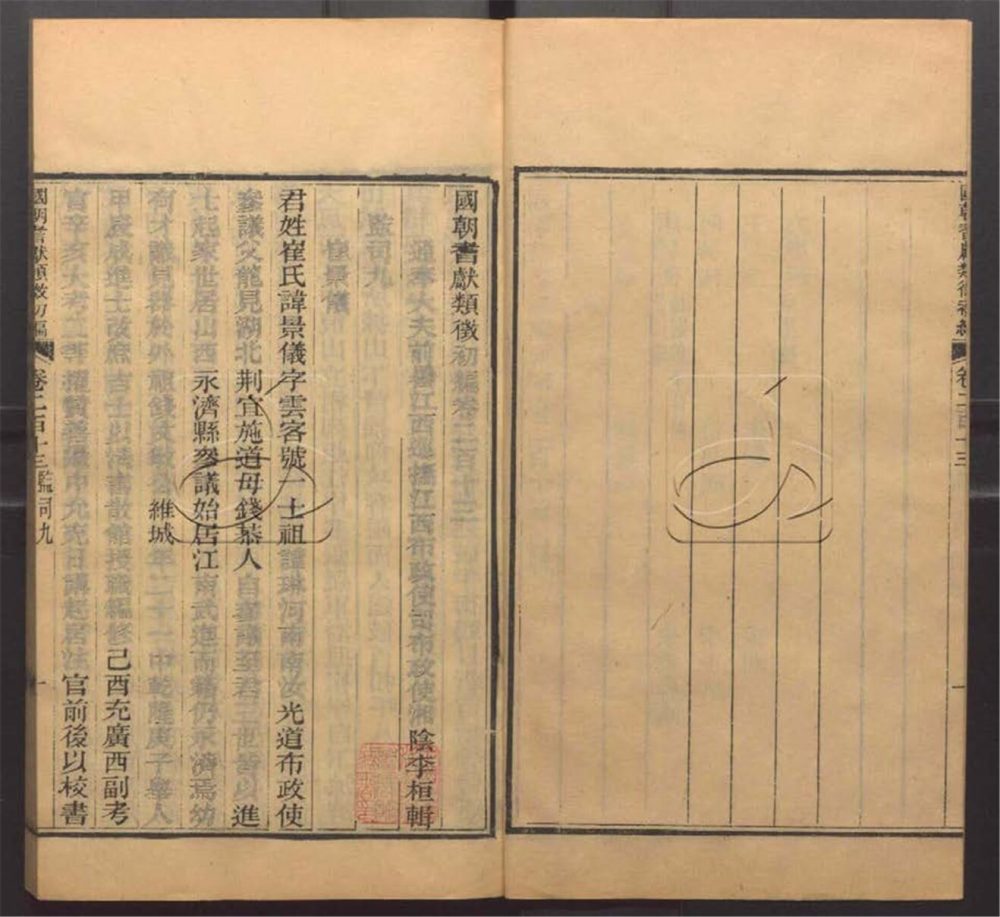 國朝耆獻類徵初編 卷二百十三 一
國朝耆獻類徵初編卷二百十三
通奉大夫前署江西巡撫江西布政使司布政使湘陰李桓輯
監司九
崔景儀
君姓崔氏諱景儀字雲客號一士祖諱琳河南南汝光道布政使
參議父龍見湖北荆宜施道母錢恭人自參議至君三世皆以進
士起家世居山西永濟縣參議始居江南武進而籍仍永濟焉幼
有才識見器於外祖錢文敏公維城年二十一中乾隆庚子舉人
甲辰成進士改庶吉士以清書散館授職編修己酉充廣西副考
官辛亥大考二等擢贊善遷中允充日講起居注官前後以校書
國朝耆獻類徵初編 卷二百十三 監司九 一